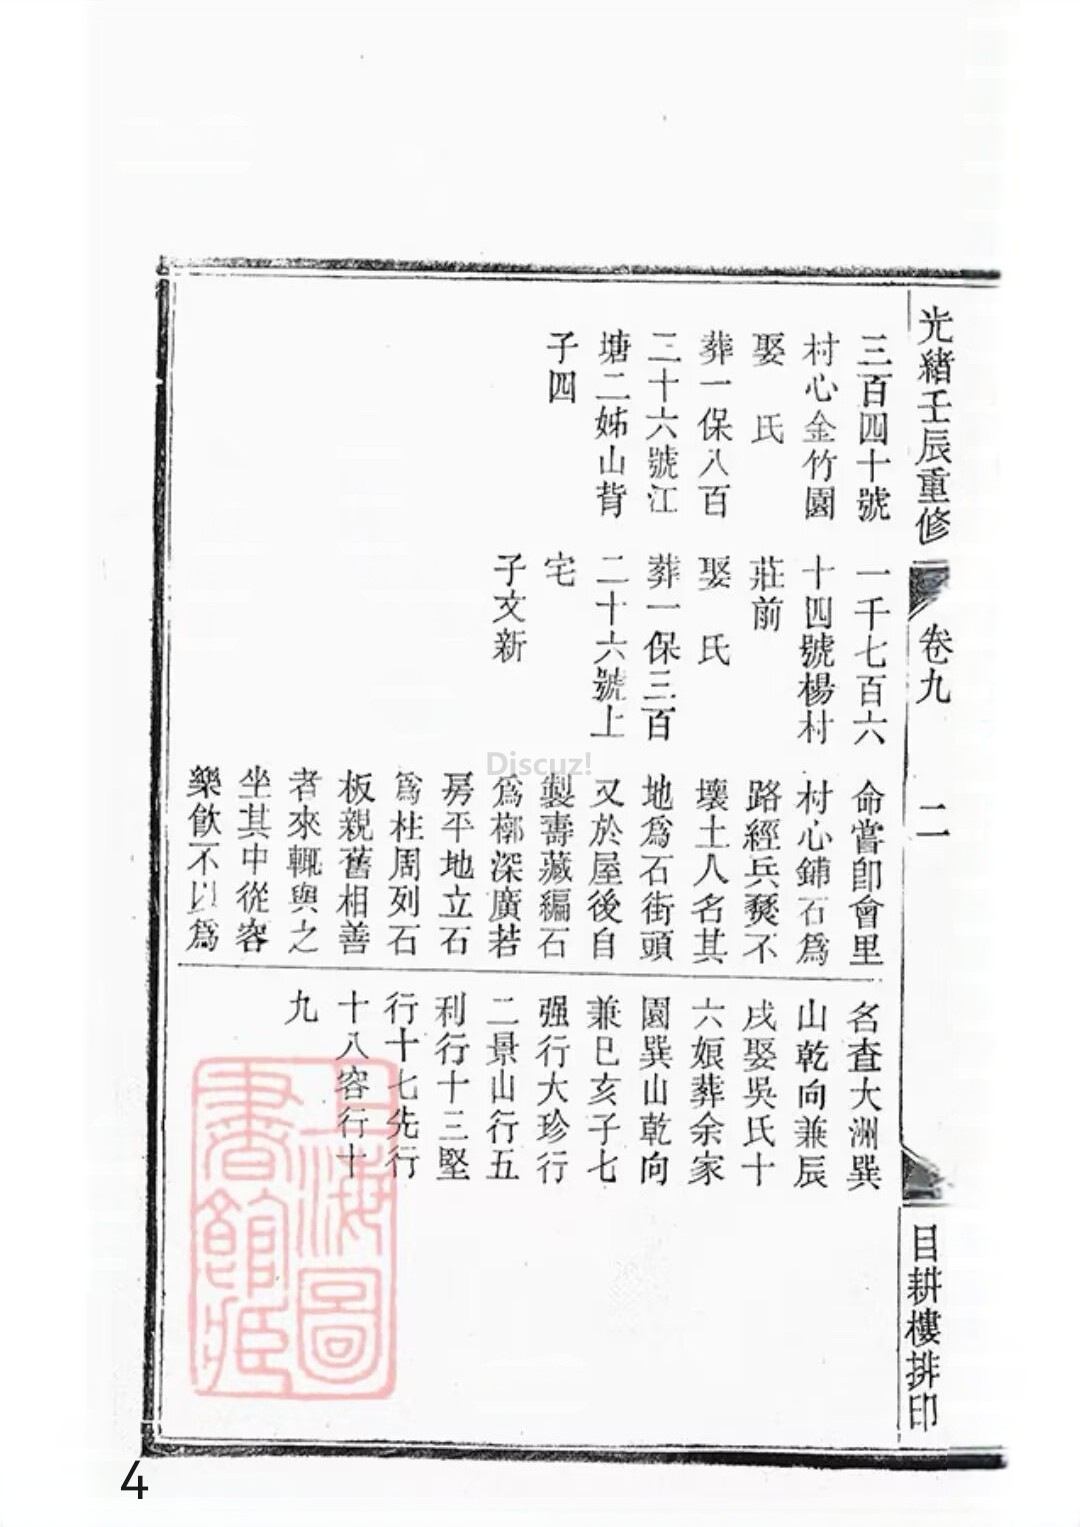 光緒壬辰重修
卷九
二
目耕樓排印
三百四十號
村心金竹園
娶　氏
葬一保八百
三十六號江
塘二姊山背
子四
一千七百六
十四號楊村
莊前
娶　氏
葬一保三百
二十六號上
宅
子文新
命嘗卽會里
村心鋪石爲
路經兵燹不
壞土人名其
地爲石街頭
又於屋後自
製壽藏編石
爲槨深廣若
房平地立石
爲柱周列石
板親舊相善
者來輒與之
坐其中從容
樂飲不以爲
名查大洲巽
山乾向兼辰
戌娶吳氏十
六娘葬余家
園巽山乾向
兼巳亥子七
强行大珍行
二景山行五
利行十三堅
行十七先行
十八容行十
九
上海圖
書館藏
Discuz!
4